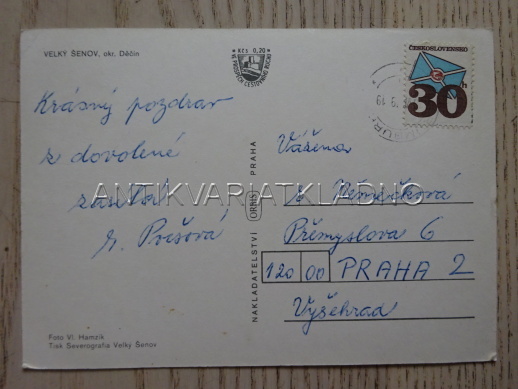 VELKÝ ŠENOV, okr. Děčín
Kčs 0,20
Krásný pozdrav
z dovolené
zasílá
ANTIKVARIATKLADNO
Foto Vl. Hamzík
Tisk Severografia Velký Šenov
NAKLADATELSTVÍ ORBIS PRAHA
ČESKOSLOVENSKO
30h
Vážená
Němečková
Přemyslova 6
120 00 PRAHA 2
Vyšehrad